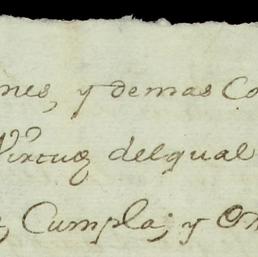 nes, y demas Co
Virtud delqual
, Cumpla; y